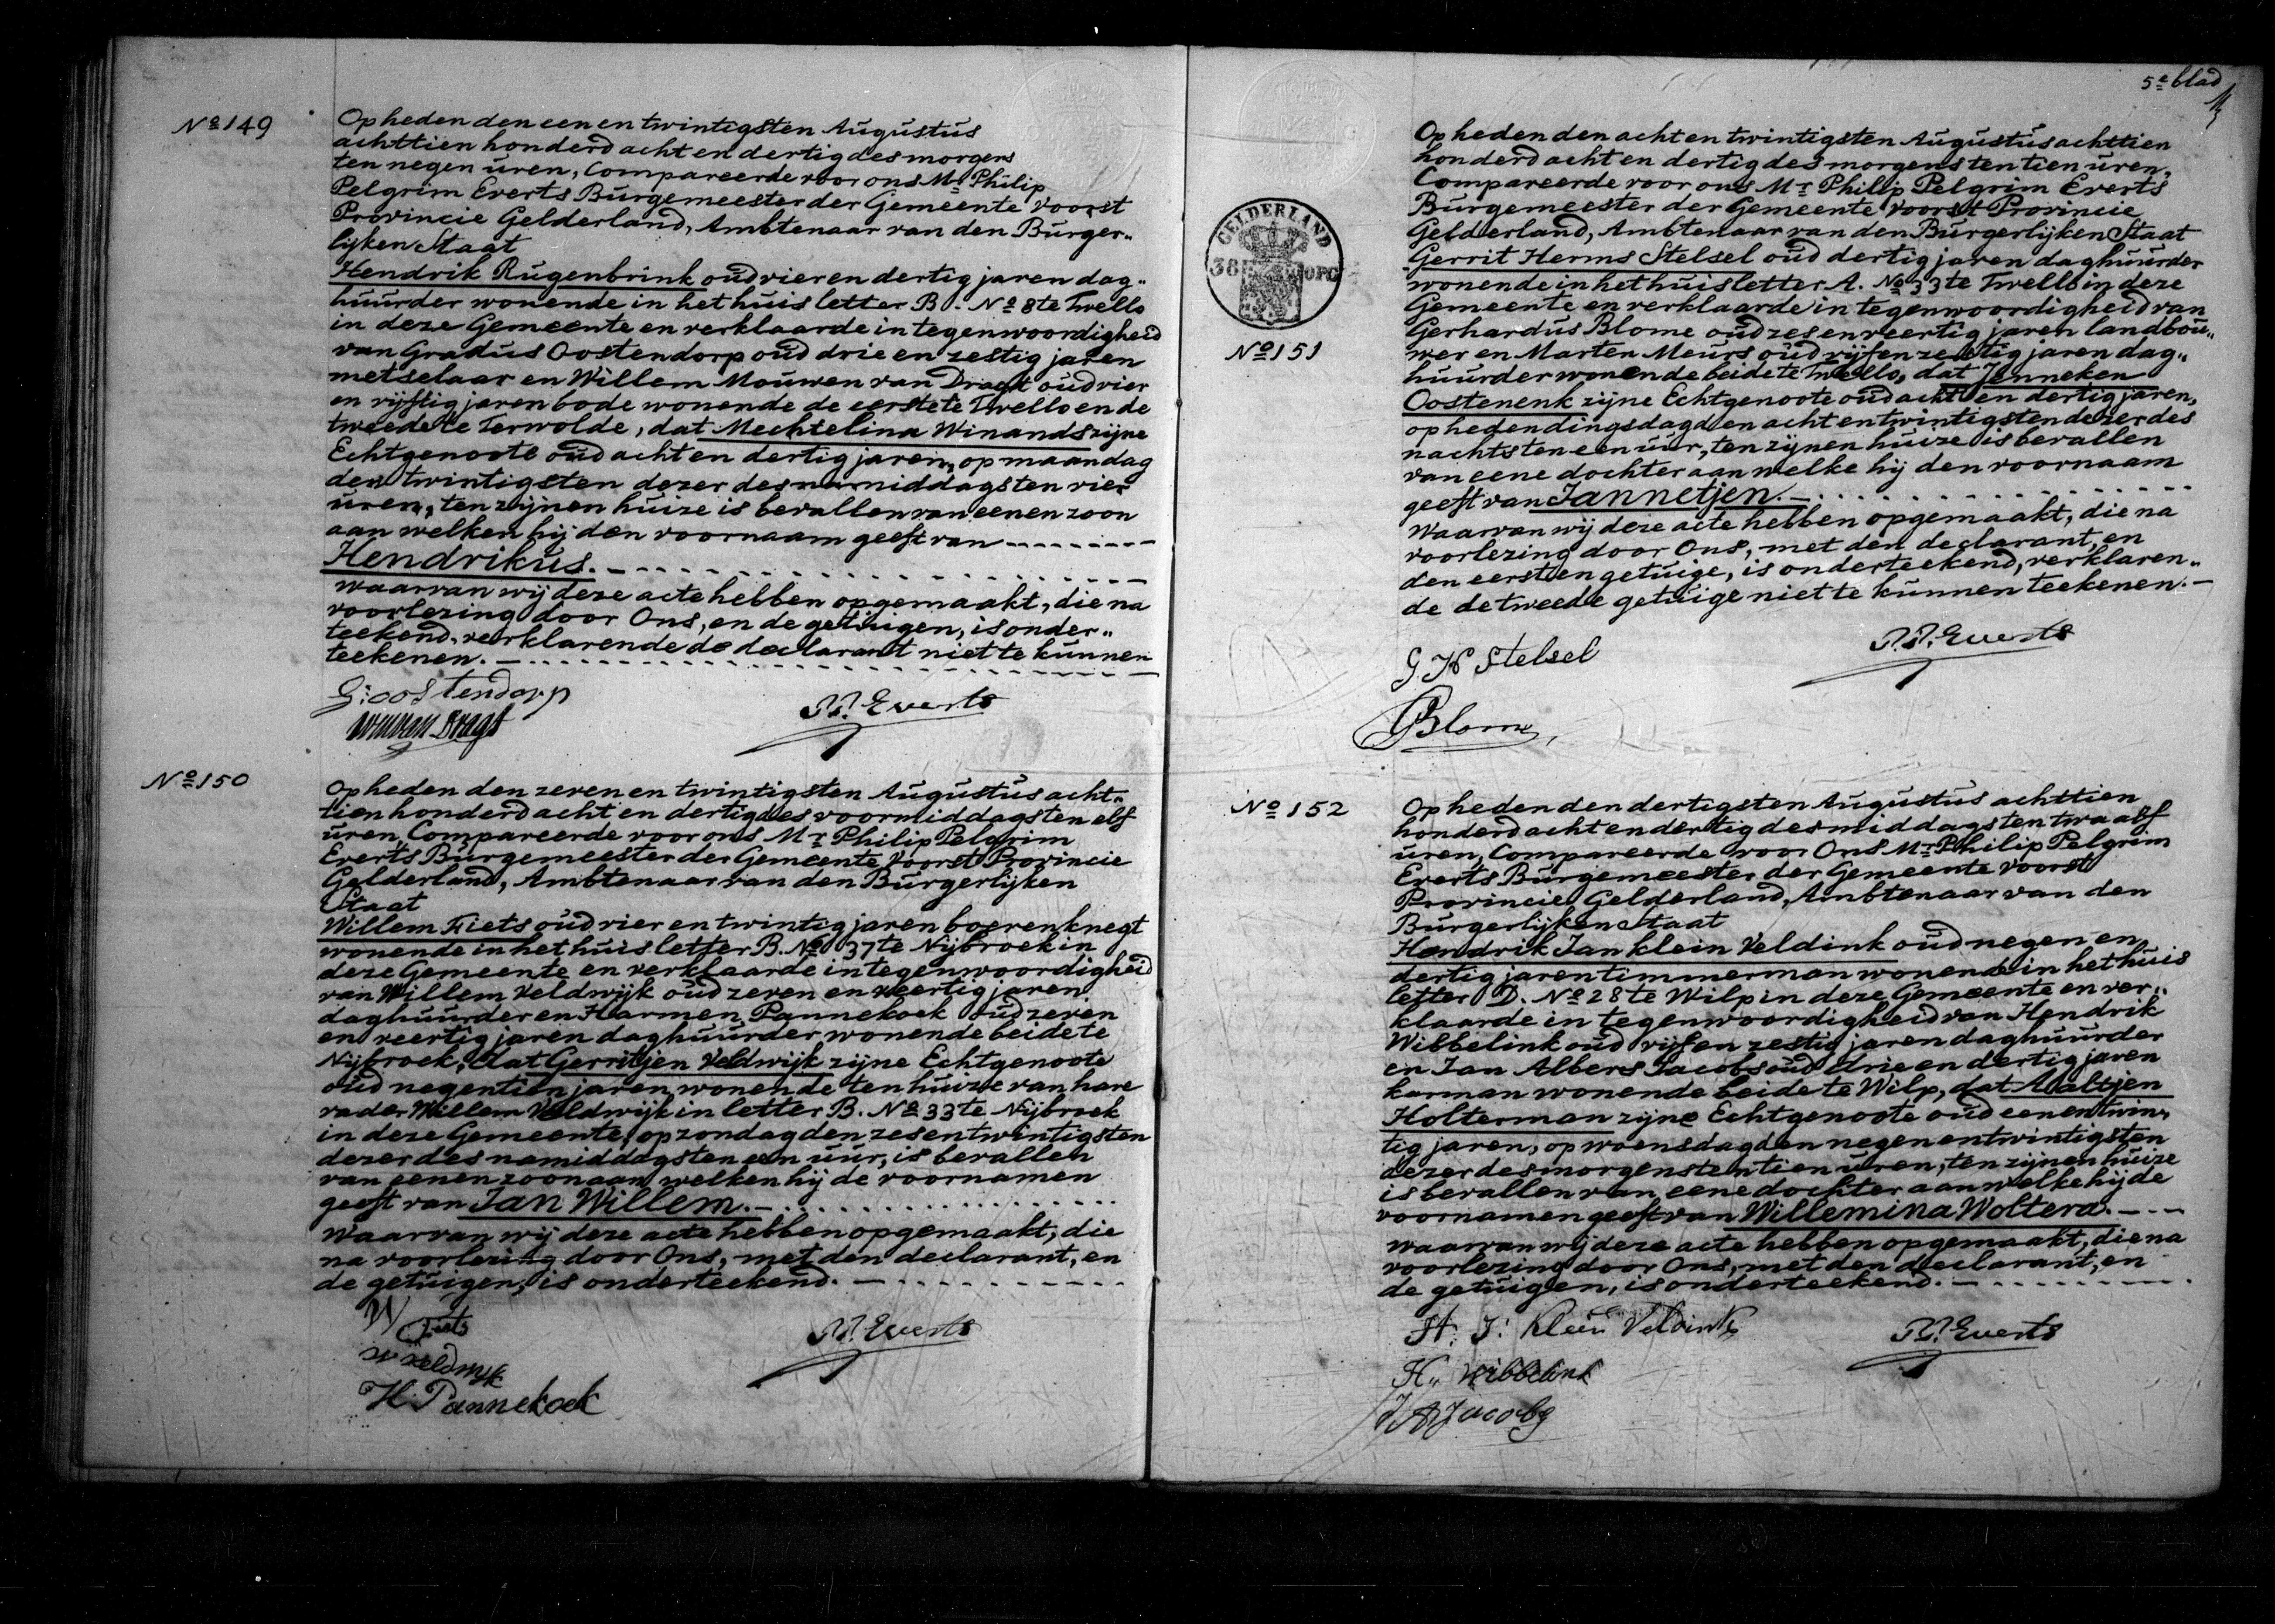 No 149
Op heden den een en twintigsten Augustus
achttien honderd acht en dertig des morgens
ten negen uren, Compareerde voor ons Mr Philip
Pelgrim Everts Burgemeester der Gemeente Voorst
Provincie Gelderland, Ambtenaar van den Burger„
lijken Staat
Hendrik Rugenbrink oud vier en dertig jaren dag„
huurder wonende in het huis letter B. No 8 te Twello
in deze Gemeente en verklaarde in tegenwoordigheid
van Gradus Oostendorp oud drie en zestig jaren
metselaar en Willem Mouwen van Dragt oud vier
en vijftig jaren bode wonende de eerste te Twello en de
tweede te Terwolde, dat Mechtelina Winands zijne
Echtgenoote oud acht en dertig jaren, op maandag
den twintigsten dezer des namiddags ten vier
uren, ten zijnen huize is bevallen van eenen zoon
aan welken hij den voornaam geeft van
Hendrikus.
Waarvan wij deze acte hebben opgemaakt, die na
voorlezing door Ons, en de getuigen, is onder„
teekend, verklarende de declarant niet te kunnen
teekenen.
G: oostendorp
P.P. Everts
No 150
Op heden den zeven en twintigsten Augustus acht„
tien honderd acht en dertig des voormiddags ten elf
uren, Compareerde voor ons Mr Philip Pelgrim
Everts Burgemeester der Gemeente Voorst Provincie
Gelderland, Ambtenaar van den Burgerlijken
Staat
Willem Fiets oud vier en twintig jaren boerenknegt
wonende in het huis letter B. No 37 te Nijbroek in
deze Gemeente en verklaarde in tegenwoordigheid
van Willem Veldwijk oud zeven en veertig jaren
daghuurder en Harmen Pannekoek oud zeven
en veertig jaren daghuurder wonende beide te
Nijbroek, dat Gerritjen Veldwijk zijne Echtgenoote
oud negentien jaren, wonende ten huize van hare
vader Willem Veldwijk in letter B. No 33 te Nijbroek
in deze Gemeente, op zondag den zes en twintigsten
dezer des namiddags ten een uur, is bevallen
van eenen zoon aan welken hij de voornamen
geeft van Jan Willem.
Waarvan wij deze acte hebben opgemaakt, die
na voorlezing door Ons, met den declarant, en
de getuigen, is onderteekend.
W Fiets
W veldwyk
H. Pannekoek
P.P. Everts
5e blad
GELDERLAND
38
OPC
No 151
Op heden den acht en twintigsten Augustus achttien
honderd acht en dertig des morgens ten tien uren,
Compareerde voor ons Mr Philip Pelgrim Everts
Burgemeester der Gemeente Voorst Provincie
Gelderland, Ambtenaar van den Burgerlijken Staat
Gerrit Herms Stelsel oud dertig jaren daghuurder
wonende in het huis letter A. No 33 te Twello in deze
Gemeente en verklaarde in tegenwoordigheid van
Gerhardus Blome oud zes en veertig jaren landbou„
wer en Marten Meurs oud vijf en zestig jaren dag„
huurder wonende beide te Twello, dat Jenneken
Oostenenk zijne Echtgenoote oud acht en dertig jaren,
op heden dingsdag den acht en twintigsten dezer des
nachts ten een uur, ten zijnen huize is bevallen
van eene dochter aan welke hij den voornaam
geeft van Jannetjen.
Waarvan wij deze acte hebben opgemaakt, die na
voorlezing door Ons, met den declarant, en
den eersten getuige, is onderteekend, verklaren„
de de tweede getuige niet te kunnen teekenen.
G. H Stelsel
P.P. Everts
G Blome
No 152
Op heden den dertigsten Augustus achttien
honderd acht en dertig des middags ten twaalf
uren, Compareerde voor Ons Mr Philip Pelgrim
Everts Burgemeester der Gemeente Voorst
Provincie Gelderland, Ambtenaar van den
Burgerlijken Staat
Hendrik Jan Klein Veldink oud negen en
dertig jaren timmerman wonende in het huis
letter D. No 28 te Wilp in deze Gemeente en ver„
klaarde in tegenwoordigheid van Hendrik
Wibbelink oud vijf en zestig jaren daghuurder
en Jan Albers Jacobs oud drie en dertig jaren
karman wonende beide te Wilp, dat Aaltjen
Holterman zijne Echtgenoote oud een en twin„
tig jaren, op woensdag den negen en twintigsten
dezer des morgens ten tien uren, ten zijnen huize
is bevallen van eene dochter aan welke hij de
voornamen geeft van Willemina Woltera.
Waarvan wij deze acte hebben opgemaakt, die na
voorlezing door Ons, met den declarant, en
de getuigen, is onderteekend.
H. J: Klein Veldink
P.P. Everts
H. Wibbelink
J A Jacobs